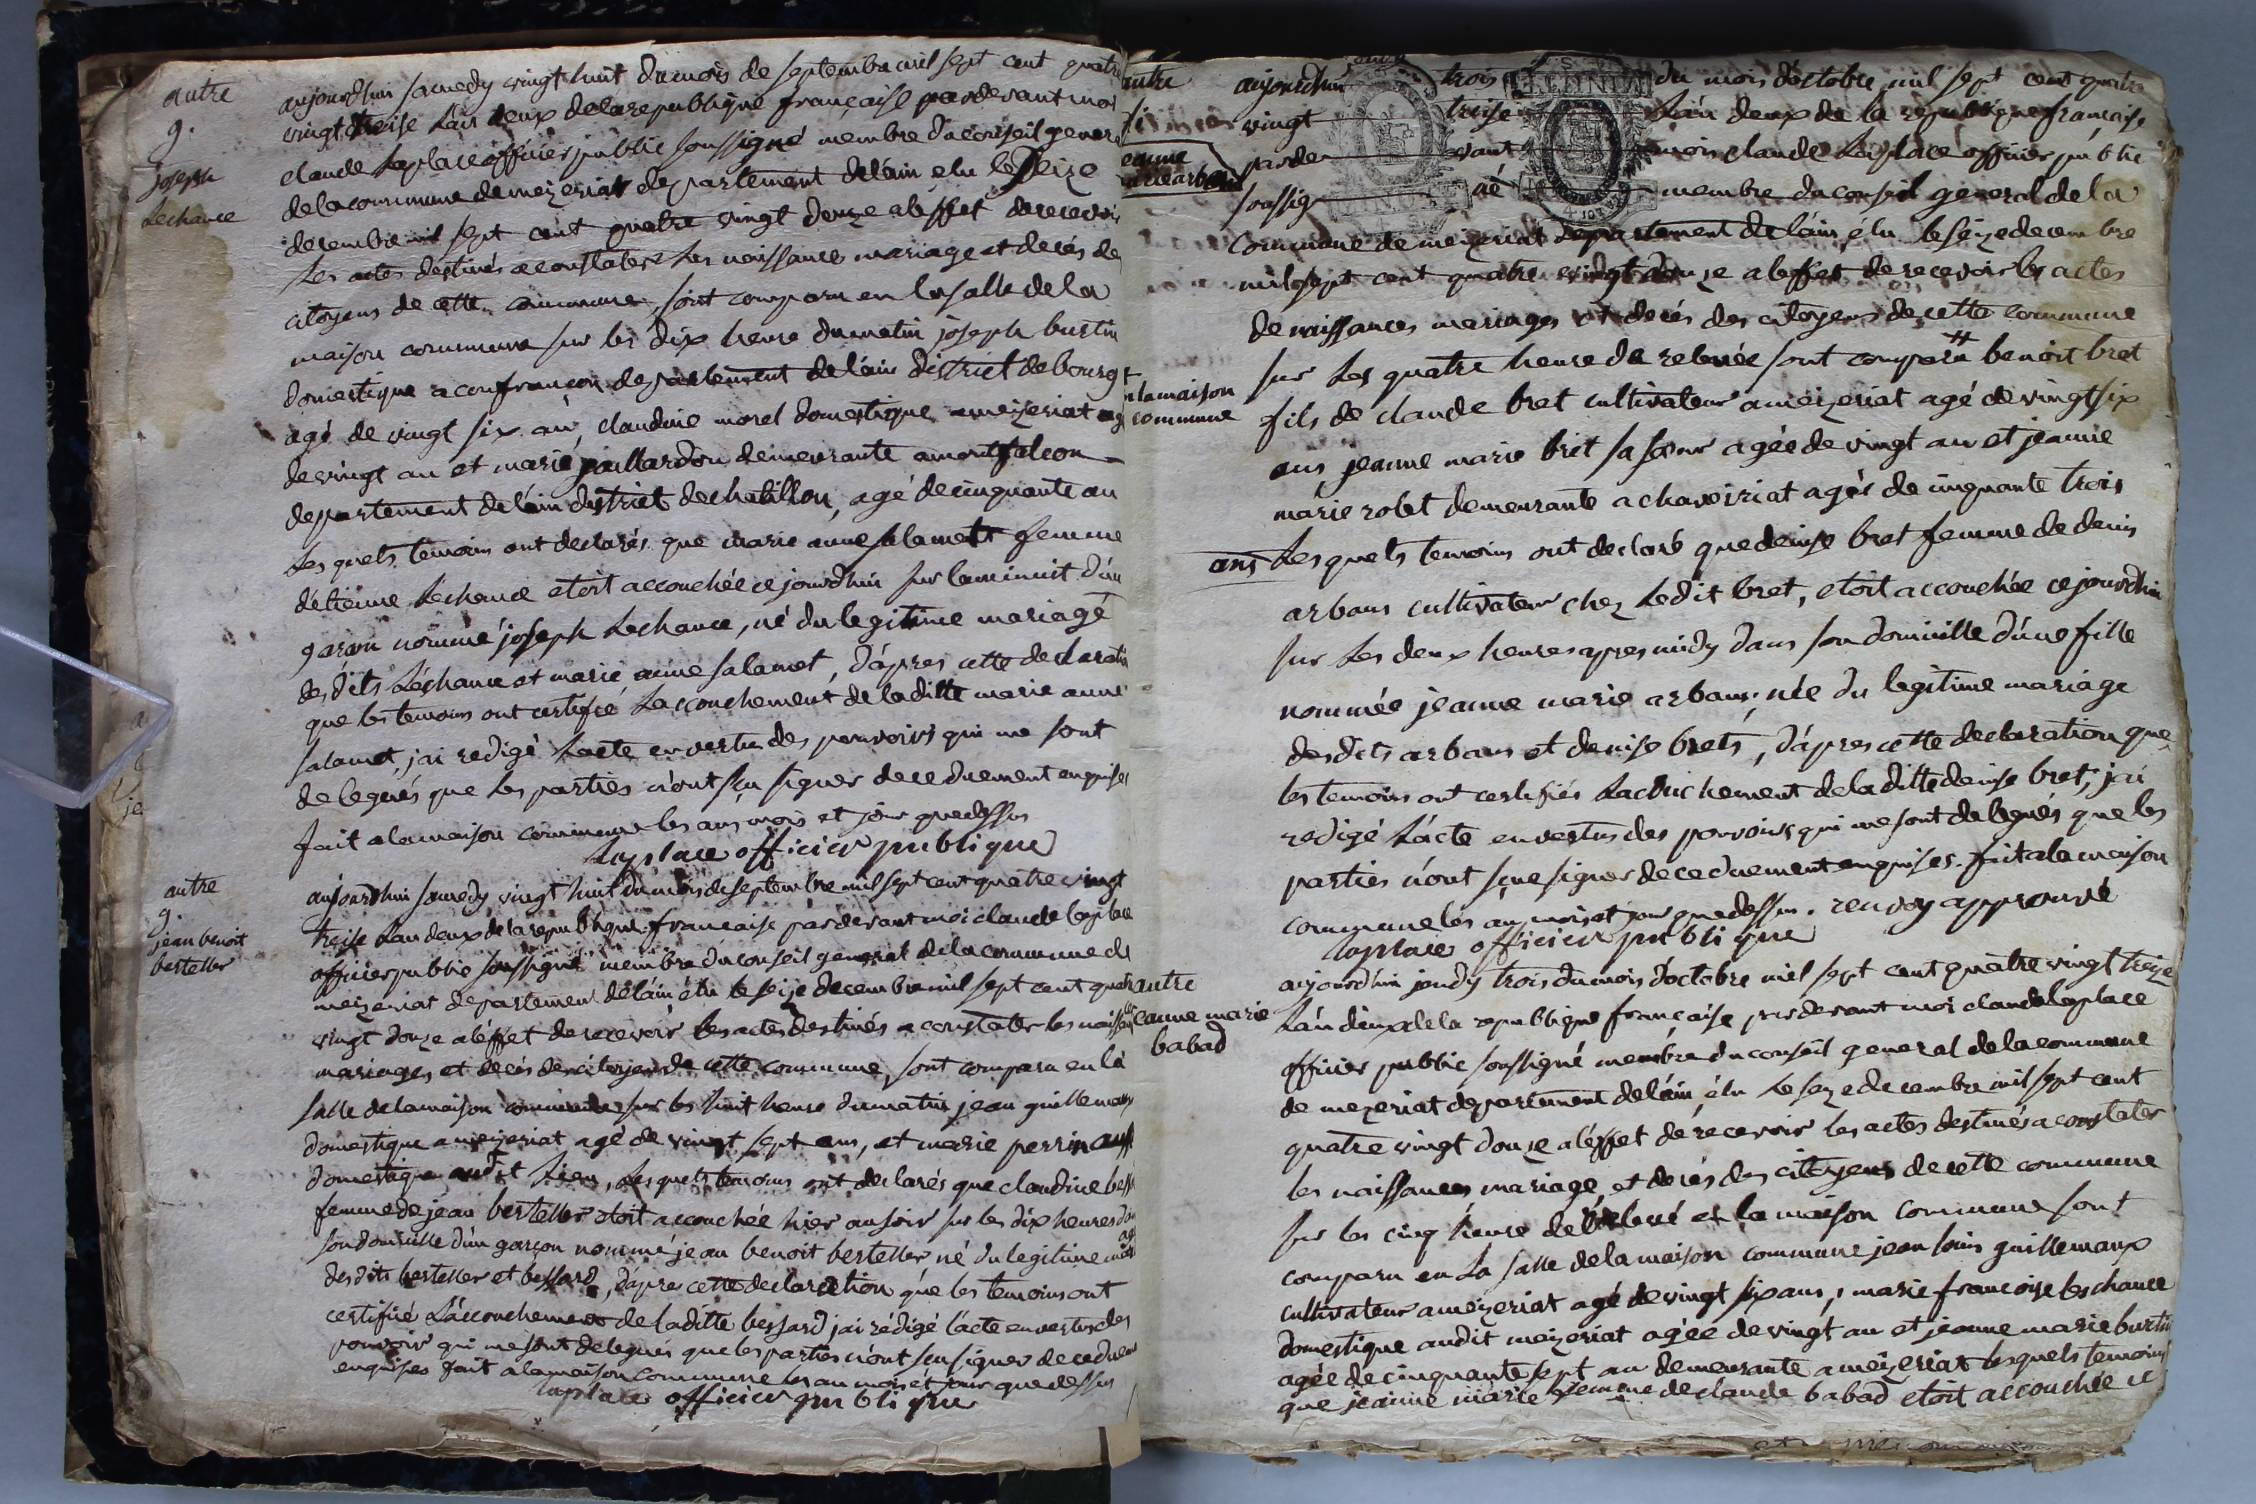 autre
g.
joseph
Lechance
aujourdhui samedy vingt huit du mois de septembre mil sept cent quatre
vingt treise Lan deux de la republique française pardevant moi
claude Laplace officier public soussigné membre du conseil general
de la commune de mezeriat departement de láin elu le Seize
decembre mil sept cent quatre vingt douze a leffet de recevoir
les actes destinés a constater les naissance mariage et decés de
citoyens de cette commune, sont comparu en la salle de la
maison commune sur les dix heure du matin joseph burtin
domestique a confrançon departement de láin district de bourg
agé de vingt six an, claudine morel domestique a mezeriat agé
de vingt an et marie paillardon demeurante a montfalcon
departement de láin district de chatillon, agé de cinquante an
Les quels temoins ont declarés que marie anne salamet femme
détienne Lechance etoit accouchée ce jourdhui sur la minuit d'un
garcon nommé joseph Lechance, né du legitime mariagé
des dits Léchance et marie anne salamet, d'apres cette declaration
que les temoins ont certifié Laccouchement de la ditte marie anne
salamet, jai redigé Lacte en vertu des pouvoirs qui me sont
delegués que les parties n'ont sçu signer de ce duement enquises
fait a la maison commune les ans mois et jour que dessus
Laplace officier publique
autre
g.
jean benoit
berteller
aujourdhui samedy vingt huit du mois de septembre mil sept cent quatre vingt
treise Lan deux de la republique francaise pardevant moi claude laplace
officier public soussigné membre du conseil general de la commune de
mezeriat departement de láin élu le seize decembre mil sept cent quatre
vingt douze a léffet de recevoir les actes destinés a constater les naissances
mariages et decés des citoyens de cette commune, sont comparu en la
salle de la maison commune sur les huit heure du matin jean guillemaux
domestique a mezeriat agé de vingt sept ans, et marie perrin aussi
domestique audit Lieu, Les quels temoins ont declarés que claudine bessard
femme de jean berteller etoit accouchée hier au soir sur les dix heures dans
son domicille d'un garçon nommé jean benoit berteller, né du legitime mariage
des dits berteller et bessard, d'apres cette declaration que les temoins ont
certifié L'accouchement de la ditte bessard jai rédigé l'acte en vertu des
pouvoir qui me sont delegues que les parties n'ont sçu signer de ce duement
enquises fait a la maison commune les an mois et jour que dessus
laplace officier publique
autre
jeanne
marie arban
aujourdhui trois du mois d'octobre mil sept cent quatre
vingt treise Lán deux de la republique française
parde vant moi claude Laplace officier public
soussig né membre du conseil general de la
commune de mezeriat departement de láin, élu le seize decembre
mil sept cent quatre vingt douze a leffet de recevoir les actes
de naissances mariages et decés des citoyens de cette commune
sur Les quatre heure de relevée sont comparu # benoit bret
# a la maison
commune
fils de claude bret cultivateur a mezeriat agé de vingt six
ans, jeanne marie bret sa sœur agée de vingt an et jeanne
márie robet demeurante a chaveiriat agés de cinquante trois
ans Lesquels temoins ont declaré que denise bret femme de denis
arbans cultivateur chez Ledit bret, etoit accouchée ce jourdhui
sur Les deux heures apres midy dans son domicille d'une fille
nommée jeanne marie arbans, née du legitime mariage
desdits arbans et denise brets, d'apres cette declaration que
les temoins ont certifiés Lacouchement de la ditte denise bret, jai
redigé L'ácte en vertu des pouvoirs qui me sont delegués que les
parties n'ont sçue signer de ce duement enquises. fait a la maison
commune les an mois et jour que dessus. renvoy approuvé
laplace officier publique
autre
jeanne marie
babad
aujourd'hui jeudy trois du mois d'octobre mil sept cent quatre vingt treize
Lán deux de la republique française pardevant moi claude laplace
officier public soussigné membre du conseil general de la commune
de mezeriat departement de láin, élu Le seze decembre mil sept cent
quatre vingt douze a léffet de recevoir les actes destinés a constater
les naissances mariage et decés des citoyens de cette commune
sur les cinq heure de relevé et la maison commune sont
comparu en La salle de la maison commune jean louis guillemaux
cultivateur a mezeriat agé de vingt six ans, marie françoise leschance
domestique audit mezeriat agée de vingt an et jeanne marie burtin
agée de cinquante sept an demeurante a mezeriat lesquels temoins
que jeanne márie femme de claude babad etoit accouchée ce